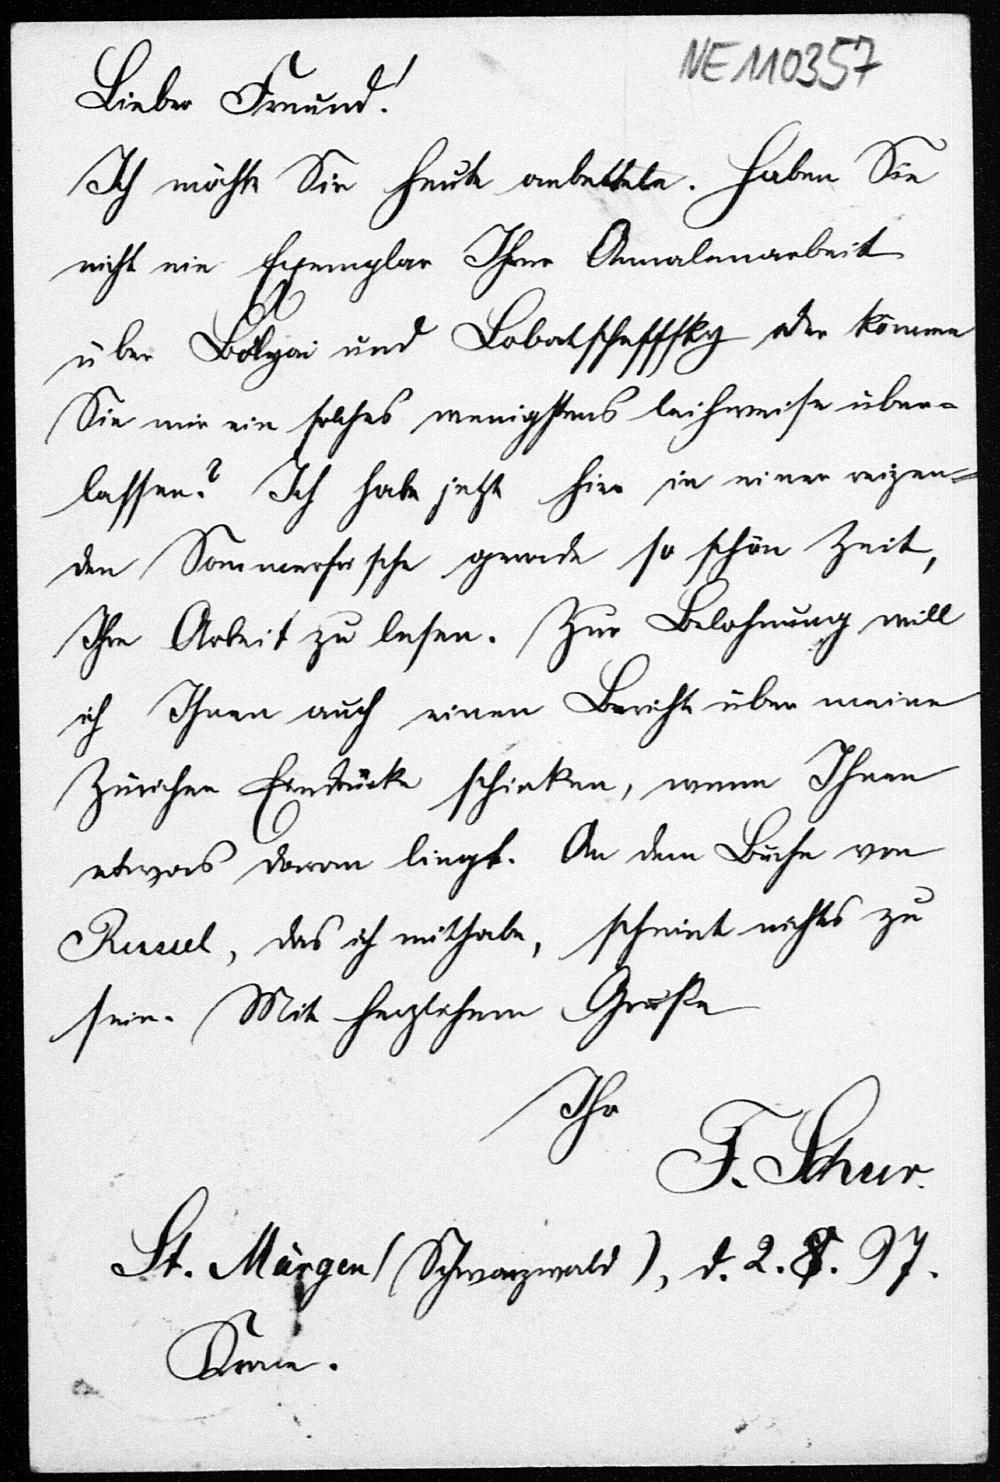 NE 110357
Lieber Freund!
Ich möchte Sie heute anbetteln. Haben Sie
nicht ein Exemplar Ihrer Annalenarbeit
über Bolyai und Lobatscheffsky oder können
Sie mir ein solches wenigstens leihweise über-
lassen? Ich habe jetzt hier in einer reizen-
den Sommerfrische gerade so schön Zeit,
Ihre Arbeit zu lesen. Zur Belohnung will
ich Ihnen auch einen Bericht über meine
Züricher Eindrücke schicken, wenn Ihnen
etwas daran liegt. An dem Buche von
Russel, das ich mithabe, scheint nichts zu
sein. Mit herzlichem Gruße
Ihr
F. Schur.
St. Märgen (Schwarzwald), d. 2. 8. 97.
Krone.